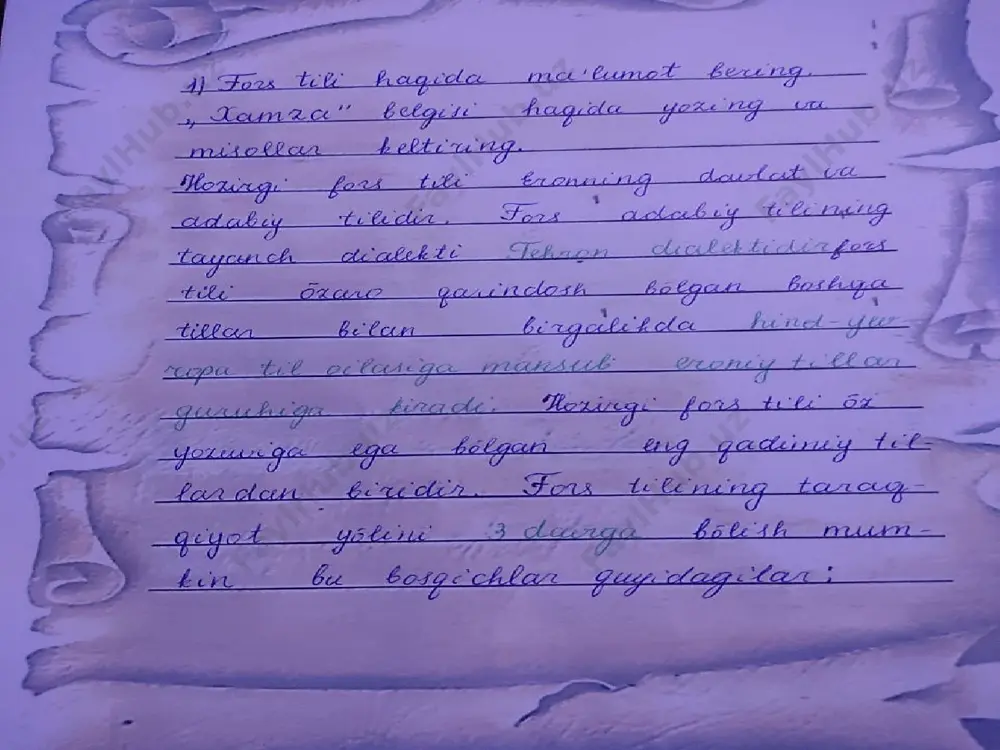 1) Fors tili haqida ma'lumot bering.
„Xamza" belgisi haqida yozing va
misollar keltiring.
Hozirgi fors tili Eronning davlat va
adabiy tilidir. Fors adabiy tilining
tayanch dialekti Tehron dialektidir fors
tili ōzaro qarindosh bōlgan boshqa
tillar bilan birgalikda hind-yev-
ropa til oilasiga mansub eroniy tillar
guruhiga kiradi. Hozirgi fors tili ōz
yozuviga ega bōlgan eng qadimiy til-
lardan biridir. Fors tilining taraq-
qiyot yōlini 3 davrga bōlish mum-
kin bu bosqichlar quyidagilar: